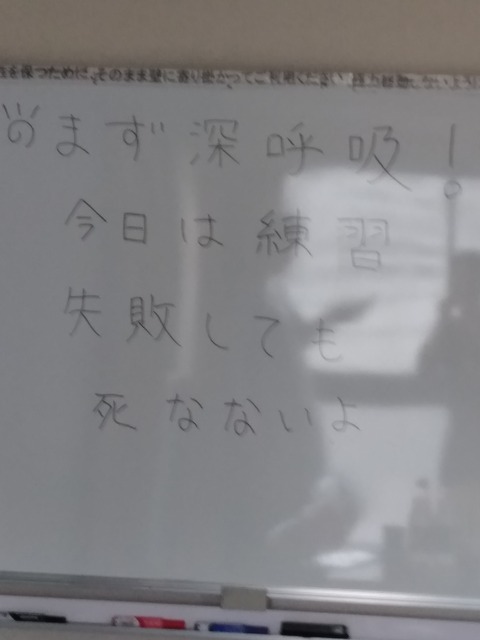 を保つために、そのまま壁に寄り掛かってご利用ください
まず深呼吸!
今日は練習
失敗しても
死なないよ